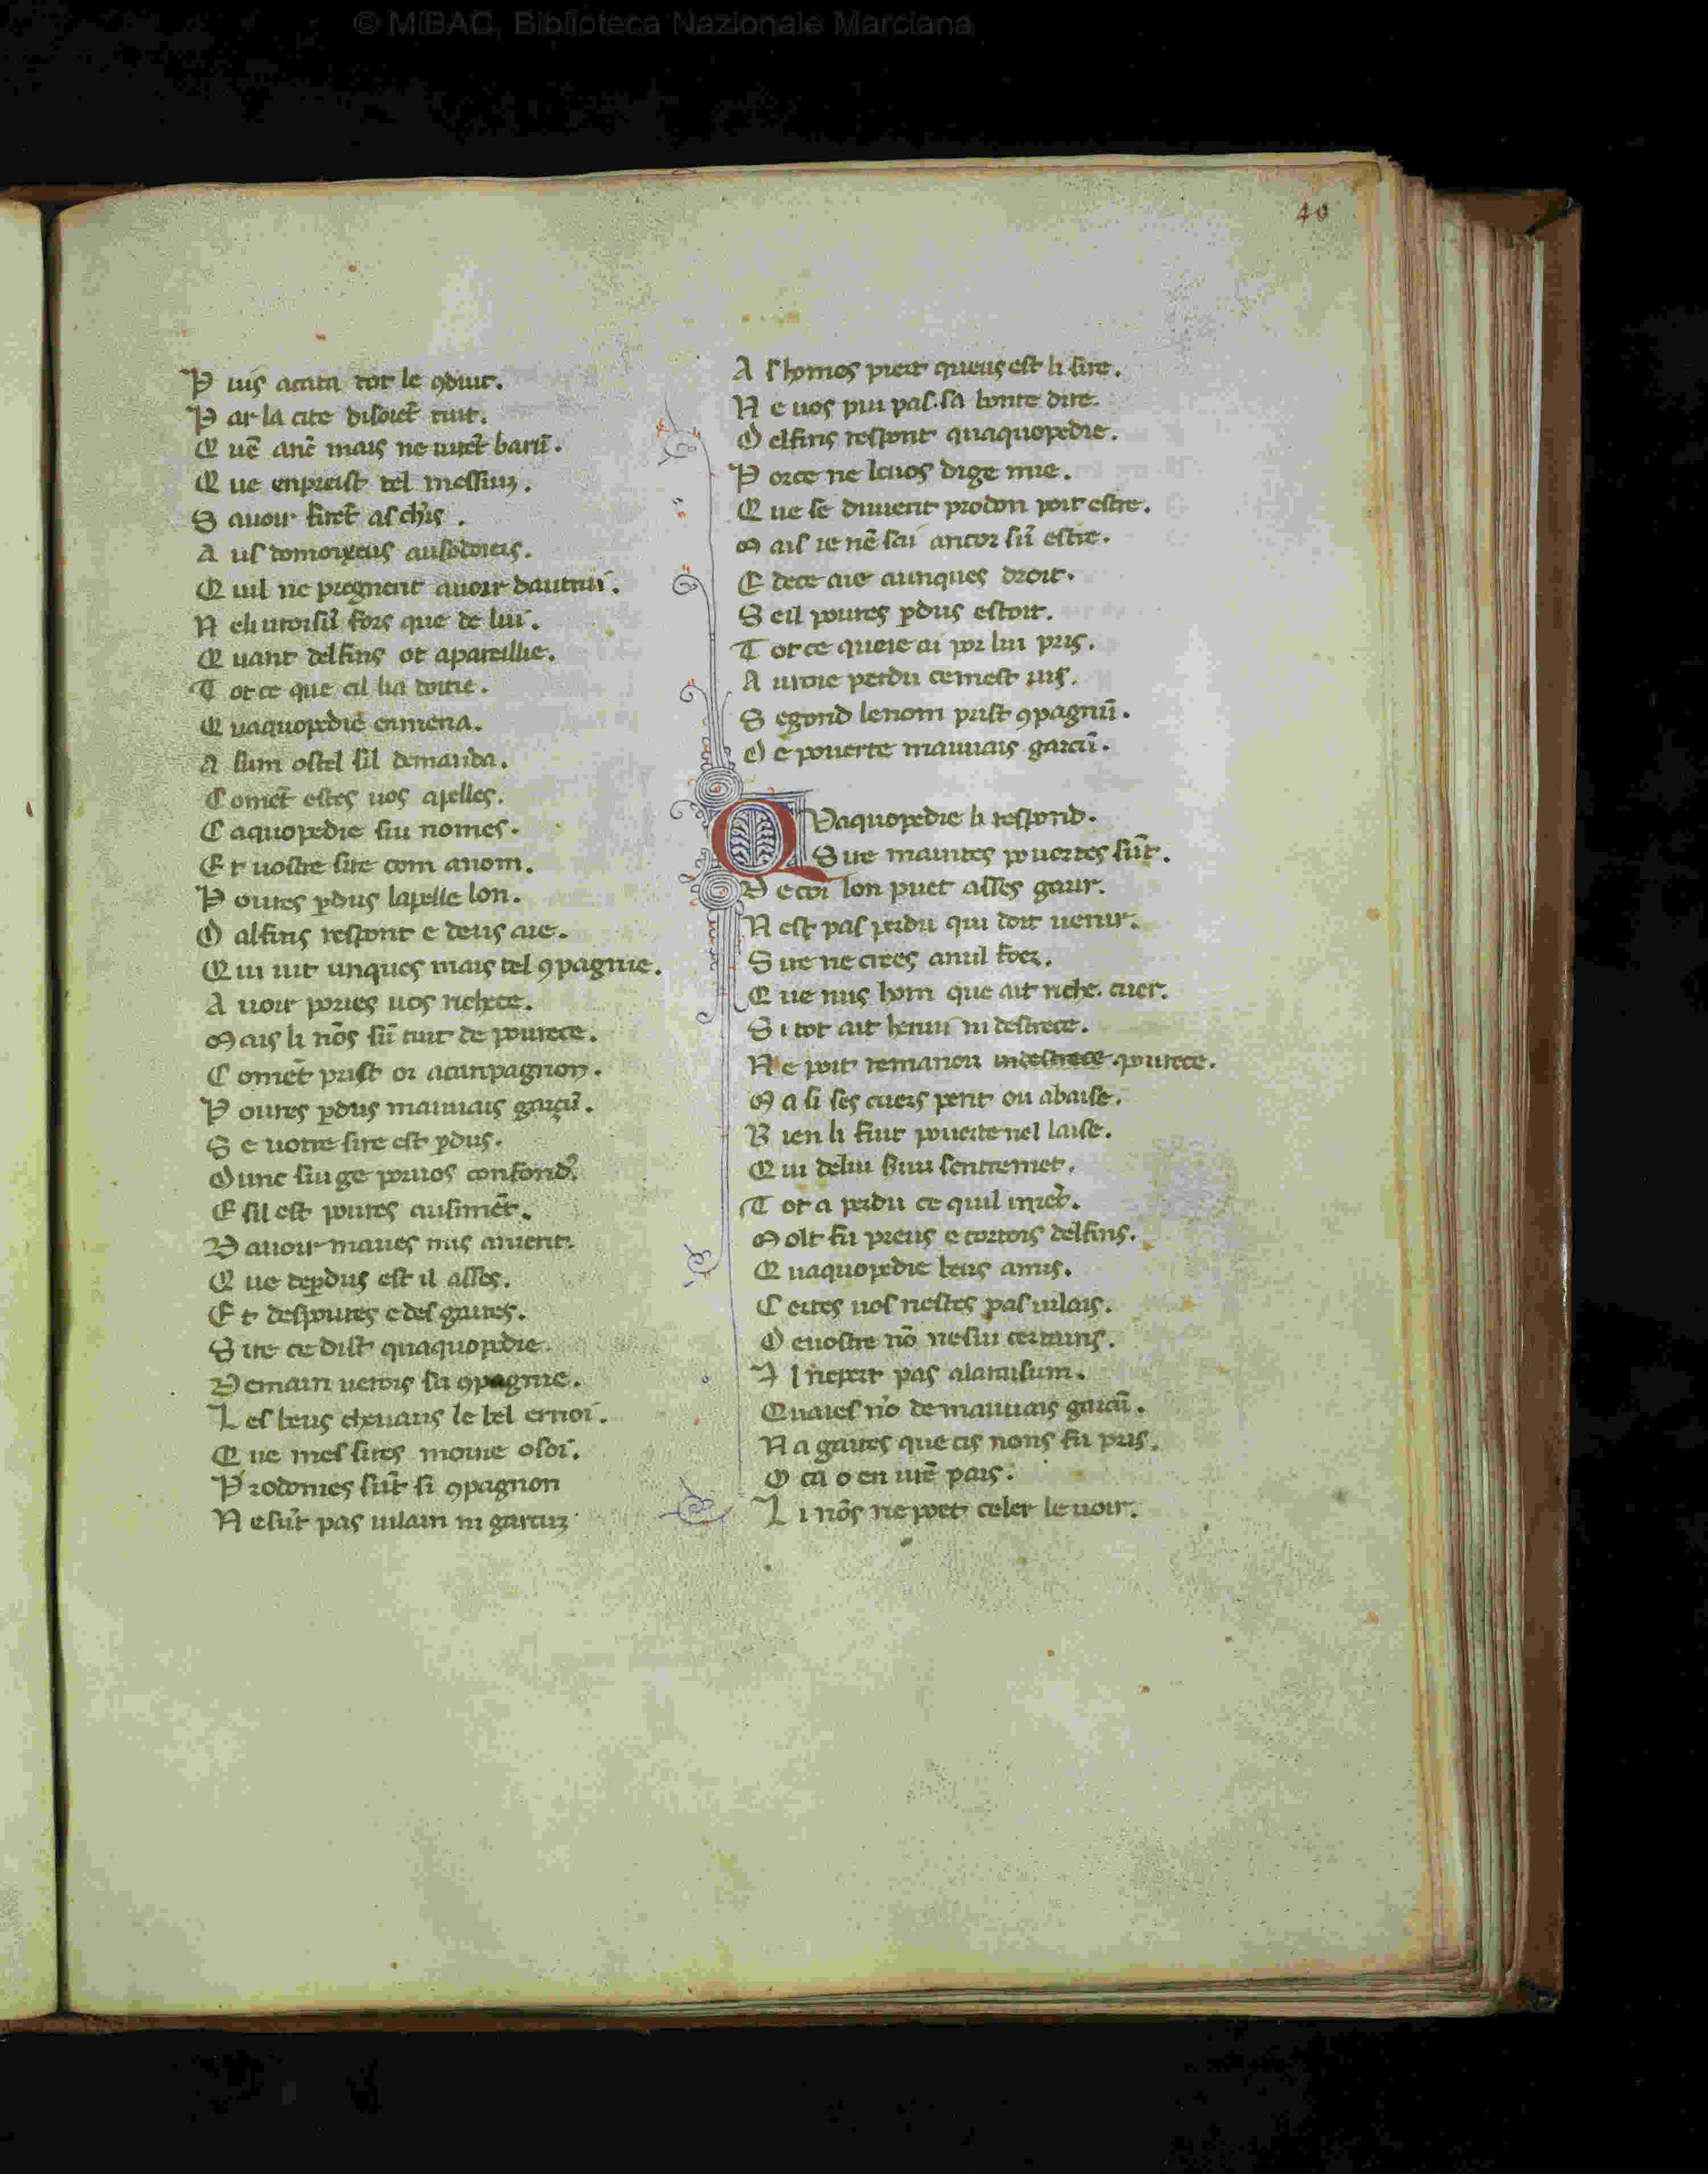 © MIBAC, Biblioteca Nazionale Marciana
40
P uis acata tot le ꝯduit.
P ar la cite disoiēt tuit.
Q uē anc̄ mais ne uirēt barū.
Q ue enpreist tel messiuȝ.
S auoir firēt as chr̄s.
A us as
Q uil ne pregnent auoir dautrui.
N fors que de lui.
Q uant delfins ot apareillie.
T ot ce que cil lia
Q uaquopedie enmena.
A sum ostel sil demanda.
C omēt estes uos apelles.
C aquopedie sui nomes.
E t uostre sire com anom.
P oures ꝑdus lapelle lon.
D alfins respont e deus aie.
Q ui uit unques mais tel ꝯpagnie.
A uoir pories uos richece.
M ais li nōs sūt tuit de pourece.
C omēt prist oi acunpagnon.
P oures ꝑdus mauuais garcū.
S e uotre sire est ꝑdus.
D unc sui ge por uos confond᷑.
E sil est poures ausimēt.
D auoir maues mis anient.
Q ue teꝑdus est il asses.
E t despoures e des gaites.
S ire ce dist quaquopedie.
D emain uerois sa ꝯpagnie.
L es beus cheuaus le bel ernoi.
Q ue mes sires moine o soi.
P rodomes sūt si ꝯpagnon
N e sūt pas uilain ni garcuȝ
A s homes piert queus est li sire.
N e uos pui pas sa bonte dire.
D elfins respont quaquopedie.
P orce ne leuos dige mie.
Q ue se diuient prodon poit estre.
M ais ie nē sai ancor sū estre.
E dece aie aunques droit.
S eil poures ꝑdus estoit.
T ot ce que ie ai por lui pris.
A uroie perdu ce mest uis.
S egond lenom prist ꝯpagnū.
D e pouerte mauuais garcū.
Q Vaquopedie li respond.
S ire maintes pouertes sūt.
D e coi lon puet asses gaur.
N est pas perdu qui doit uenir.
S ire ne crees anul foer.
Q ue nus hom que ait riche cuer.
S i tot ait ni destrece.
N e poit remanoir indestrece pourece.
M a si ses cuers pent ou abaise.
B ien li fuit pouerte nel laise.
Q ui delui sentremet.
T ot a perdu ce quil imet.
M olt fu preus e cortois delfins.
Q uaquopedie beus amis.
C ertes uos nestes pas uilais.
D e uostre nō ne sui certains.
I l nepert pas alaraisum.
Q uaies nō de mauuais garcū.
N a gaires que cis nons fu pris.
O ca o en urē pais.
L i nōs ne poet celer le uoir.